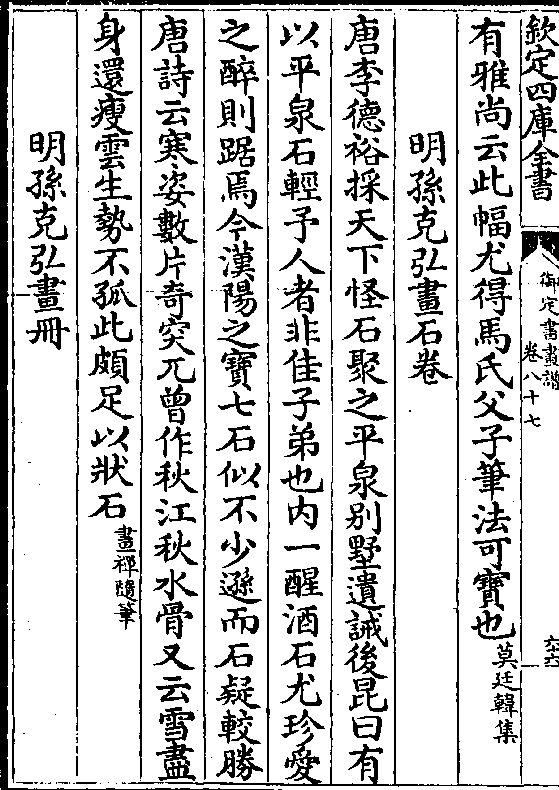 欽定四庫全書
御定書畫譜
卷八十七
六六
有雅尚云此幅尤得馬氏父子筆法可寶也莫廷韓集
明孫克弘畫石卷
唐李德裕採天下怪石聚之平泉别墅遺誡後昆曰有
以平泉石輕予人者非佳子弟也内一醒酒石尤珍愛
之醉則踞焉今漢陽之寶七石似不少遜而石疑較勝
唐詩云寒姿數片奇突兀曾作秋江秋水骨又云雪盡
身還瘦雲生勢不孤此頗足以狀石畫禪隨筆
明孫克弘畫冊